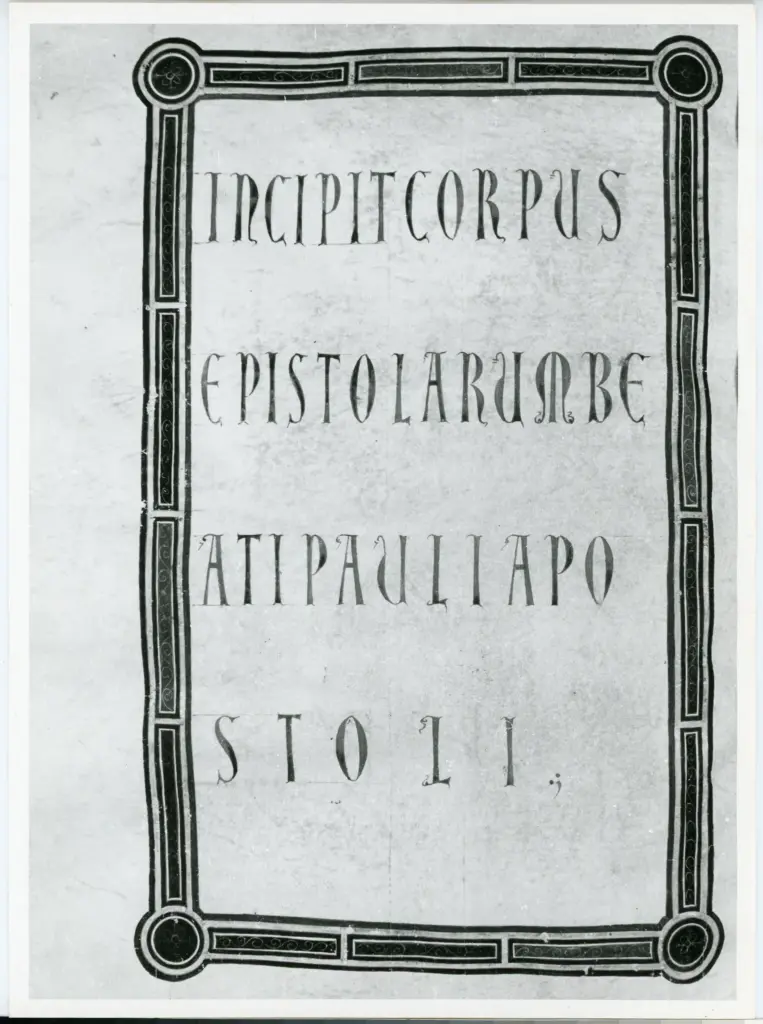 INCIPITCORPUS
EPISTOLARUMBE
ATIPAULIAPO
STOLI.;